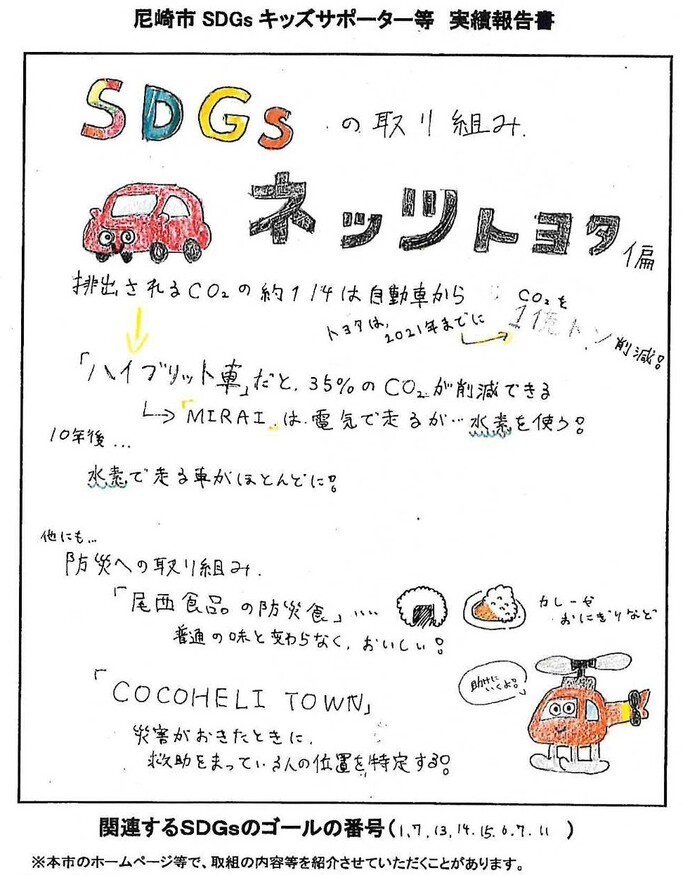 尼崎市 SDGs キッズサポーター等　実績報告書
SDGs の取り組み.
ネッツトヨタ 偏
排出されるCO₂の約1/4は自動車から
トヨタは、2021年までに CO₂を1億トン削減!
「ハイブリット車」だと、35%のCO₂が削減できる
→「MIRAI」は電気で走るが…水素を使う!
10年後...
水素で走る車がほとんどに!
他にも...
防災への取り組み.
「尾西食品の防災食」....
カレーや
おにぎりなど
普通の味と変わらなく、おいしい!
「COCOHELI TOWN」
助けに
いくよ!
災害がおきたときに、
救助をまっている人の位置を特定する!
関連するSDGsのゴールの番号(1,7,13,14,15,6,7,11)
※本市のホームページ等で、取組の内容等を紹介させていただくことがあります。